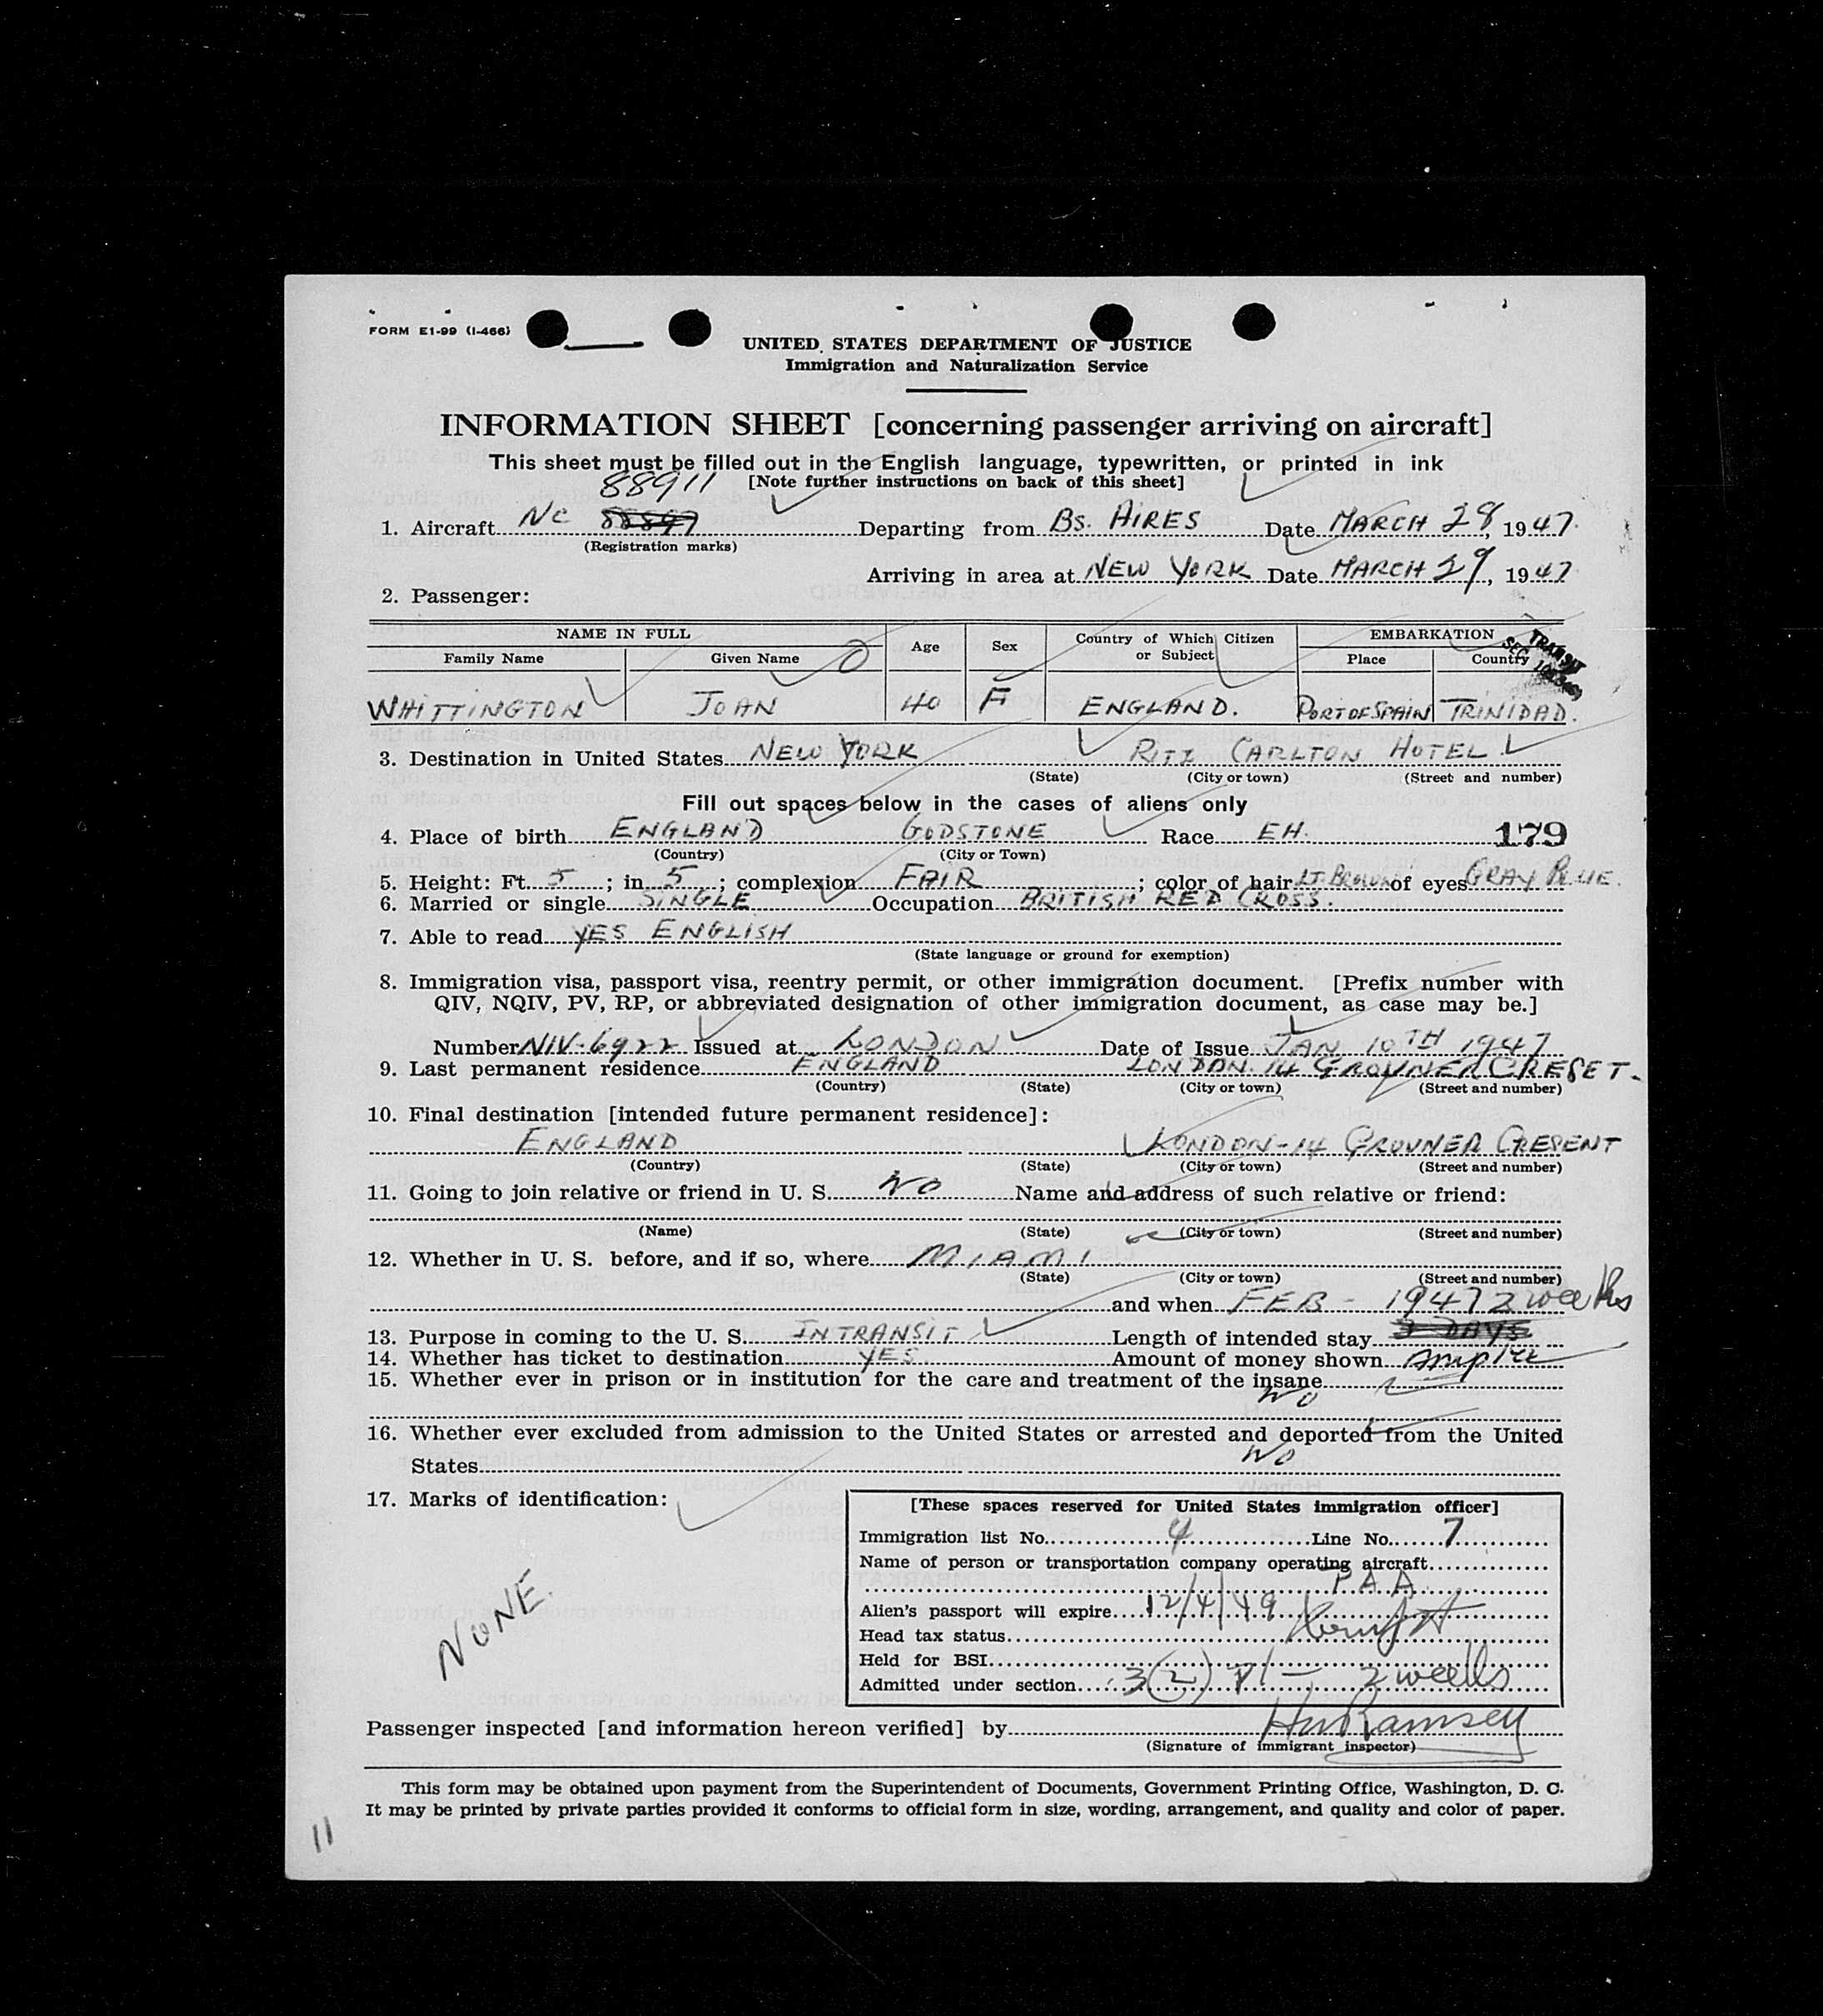 FORM E1-99 (I-466)
UNITED STATES DEPARTMENT OF JUSTICE
Immigration and Naturalization Service
INFORMATION SHEET [concerning passenger arriving on aircraft]
This sheet must be filled out in the English language, typewritten, or printed in ink
[Note further instructions on back of this sheet]
88911
1. Aircraft NC 88897 Departing from Bs. AIRES Date MARCH 28, 1947
(Registration marks)
Arriving in area at NEW YORK Date MARCH 29, 1947
2. Passenger:
NAME IN FULL Age Sex Country of Which Citizen or Subject EMBARKATION
Family Name Given Name Place Country
TRANSIT
SEC.
WHITTINGTON JOAN 40 F ENGLAND. PORT OF SPAIN TRINIDAD.
3. Destination in United States NEW YORK RITZ CARLTON HOTEL
(State) (City or town) (Street and number)
Fill out spaces below in the cases of aliens only
4. Place of birth ENGLAND GODSTONE Race EH. 179
(Country) (City or Town)
5. Height: Ft. 5; in. 5; complexion FAIR; color of hair LT. BROWN of eyes GRAY BLUE.
6. Married or single SINGLE Occupation BRITISH RED CROSS.
7. Able to read YES ENGLISH
(State language or ground for exemption)
8. Immigration visa, passport visa, reentry permit, or other immigration document. [Prefix number with
QIV, NQIV, PV, RP, or abbreviated designation of other immigration document, as case may be.]
Number NIV-6922 Issued at LONDON Date of Issue JAN 10TH 1947
9. Last permanent residence ENGLAND LONDON. 14 GROVNER CRESET.
(Country) (State) (City or town) (Street and number)
10. Final destination [intended future permanent residence]:
ENGLAND LONDON-14 GROVNER CRESENT
(Country) (State) (City or town) (Street and number)
11. Going to join relative or friend in U. S. NO Name and address of such relative or friend:
(Name) (State) (City or town) (Street and number)
12. Whether in U. S. before, and if so, where MIAMI
(State) (City or town) (Street and number)
and when FEB - 1947 2 weeks
13. Purpose in coming to the U. S. INTRANSIT Length of intended stay 3 DAYS
14. Whether has ticket to destination YES Amount of money shown Ample
15. Whether ever in prison or in institution for the care and treatment of the insane
NO
16. Whether ever excluded from admission to the United States or arrested and deported from the United
States NO
17. Marks of identification:
NONE.
[These spaces reserved for United States immigration officer]
Immigration list No. 4 Line No. 7
Name of person or transportation company operating aircraft
P A A
Alien's passport will expire 12/4/49
Head tax status
Held for BSI
Admitted under section 3(2) P1 - 2 weeks
Passenger inspected [and information hereon verified] by HW Ramsey
(Signature of immigrant inspector)
This form may be obtained upon payment from the Superintendent of Documents, Government Printing Office, Washington, D. C.
It may be printed by private parties provided it conforms to official form in size, wording, arrangement, and quality and color of paper.
11